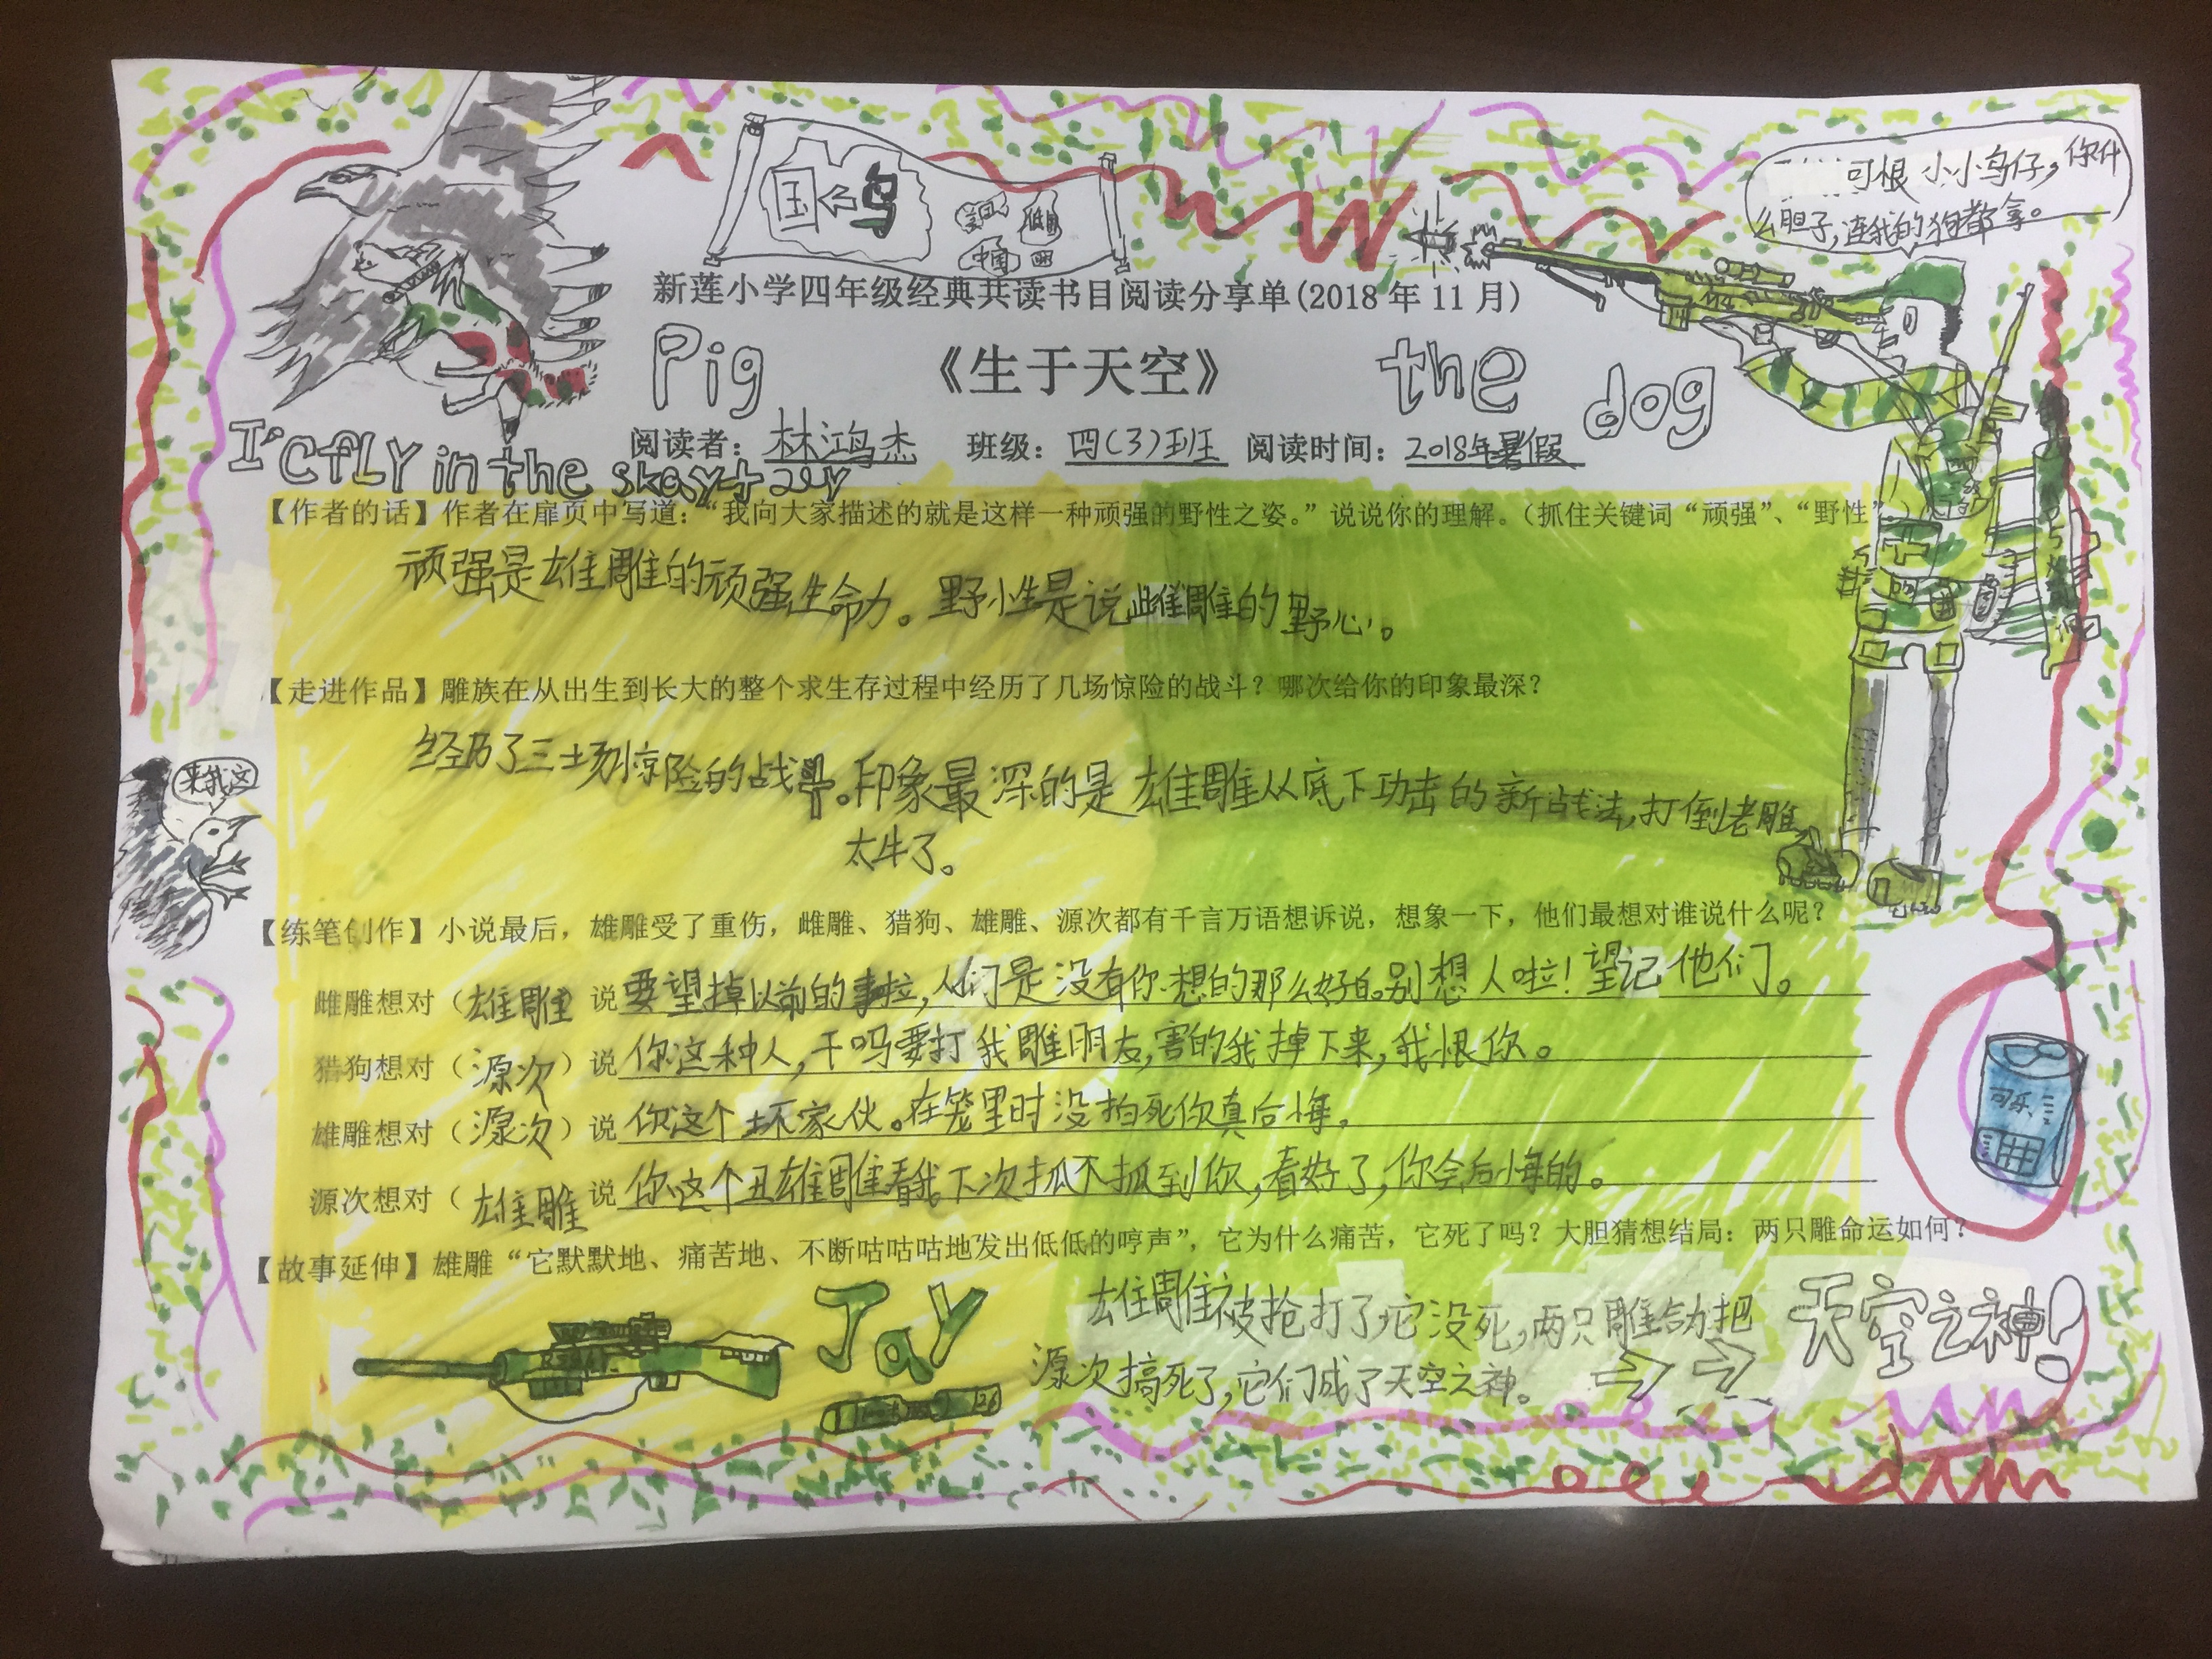 国 鸟
中国
可恨小小鸟仔,你什
么胆子,连我的狗都拿。
新莲小学四年级经典共读书目阅读分享单(2018 年 11 月)
Pig 《生于天空》 the dog
阅读者：林鸿杰 班级：四(3)班 阅读时间：2018年暑假
I'CfLY in the
【作者的话】作者在扉页中写道：“我向大家描述的就是这样一种顽强的野性之姿。”说说你的理解。（抓住关键词“顽强”、“野性”
顽强是雄雕的顽强生命力。野性是说雌雕的野心。
【走进作品】雕族在从出生到长大的整个求生存过程中经历了几场惊险的战斗？哪次给你的印象最深？
经历了三场惊险的战斗。印象最深的是雄雕从底下功击的新战法,打倒老雕
太牛了。
来我这
【练笔创作】小说最后，雄雕受了重伤，雌雕、猎狗、雄雕、源次都有千言万语想诉说，想象一下，他们最想对谁说什么呢？
雌雕想对（雄雕 说要望掉以前的事拉,人们是没有你想的那么好的。别想人啦！望记他们。
猎狗想对（源次）说你这种人,干吗要打我雕朋友,害的我掉下来,我恨你。
雄雕想对（源次）说你这个坏家伙。在笼里时没拍死你真后悔。
源次想对（雄雕 说你这个丑雄雕看我下次抓不抓到你,看好了,你会后悔的。
可乐
【故事延伸】雄雕“它默默地、痛苦地、不断咕咕咕地发出低低的哼声”，它为什么痛苦，它死了吗？大胆猜想结局：两只雕命运如何？
JaY
雄雕被抢打了,它没死,两只雕合力把
源次搞死了,它们成了天空之神。
天空之神！